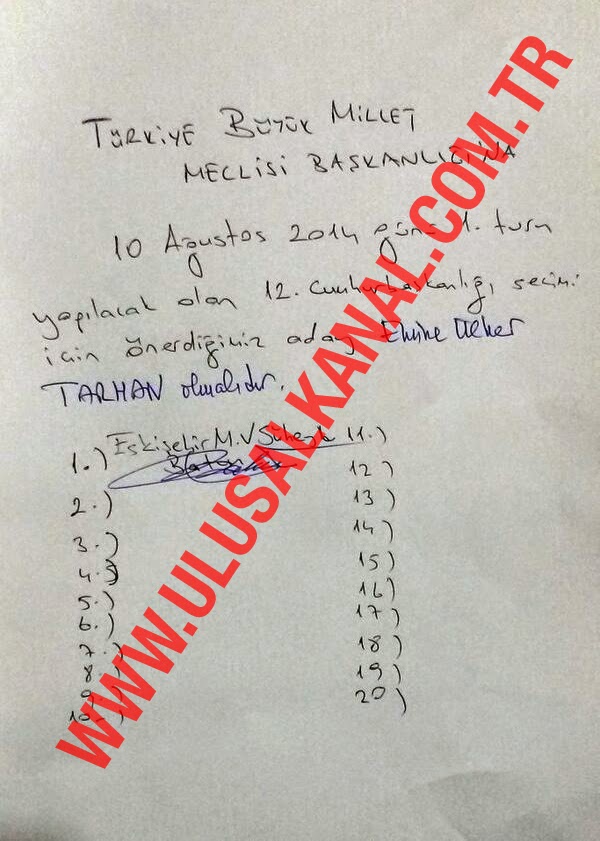 TÜRKİYE BÜYÜK MİLLET
MECLİSİ BAŞKANLIĞI'NA
10 Ağustos 2014 günü 1. turu
yapılacak olan 12. Cumhurbaşkanlığı seçimi
için önerdiğimiz aday Emine Ülker
TARHAN olmalıdır.
1.) Eskişehir M.V Süheyl 11.)
Batum
2.) 12)
3.) 13)
4.) 14)
5.) 15)
6.) 16)
7.) 17)
8.) 18)
9.) 19)
10.) 20)
WWW.ULUSALKANAL.COM.TR